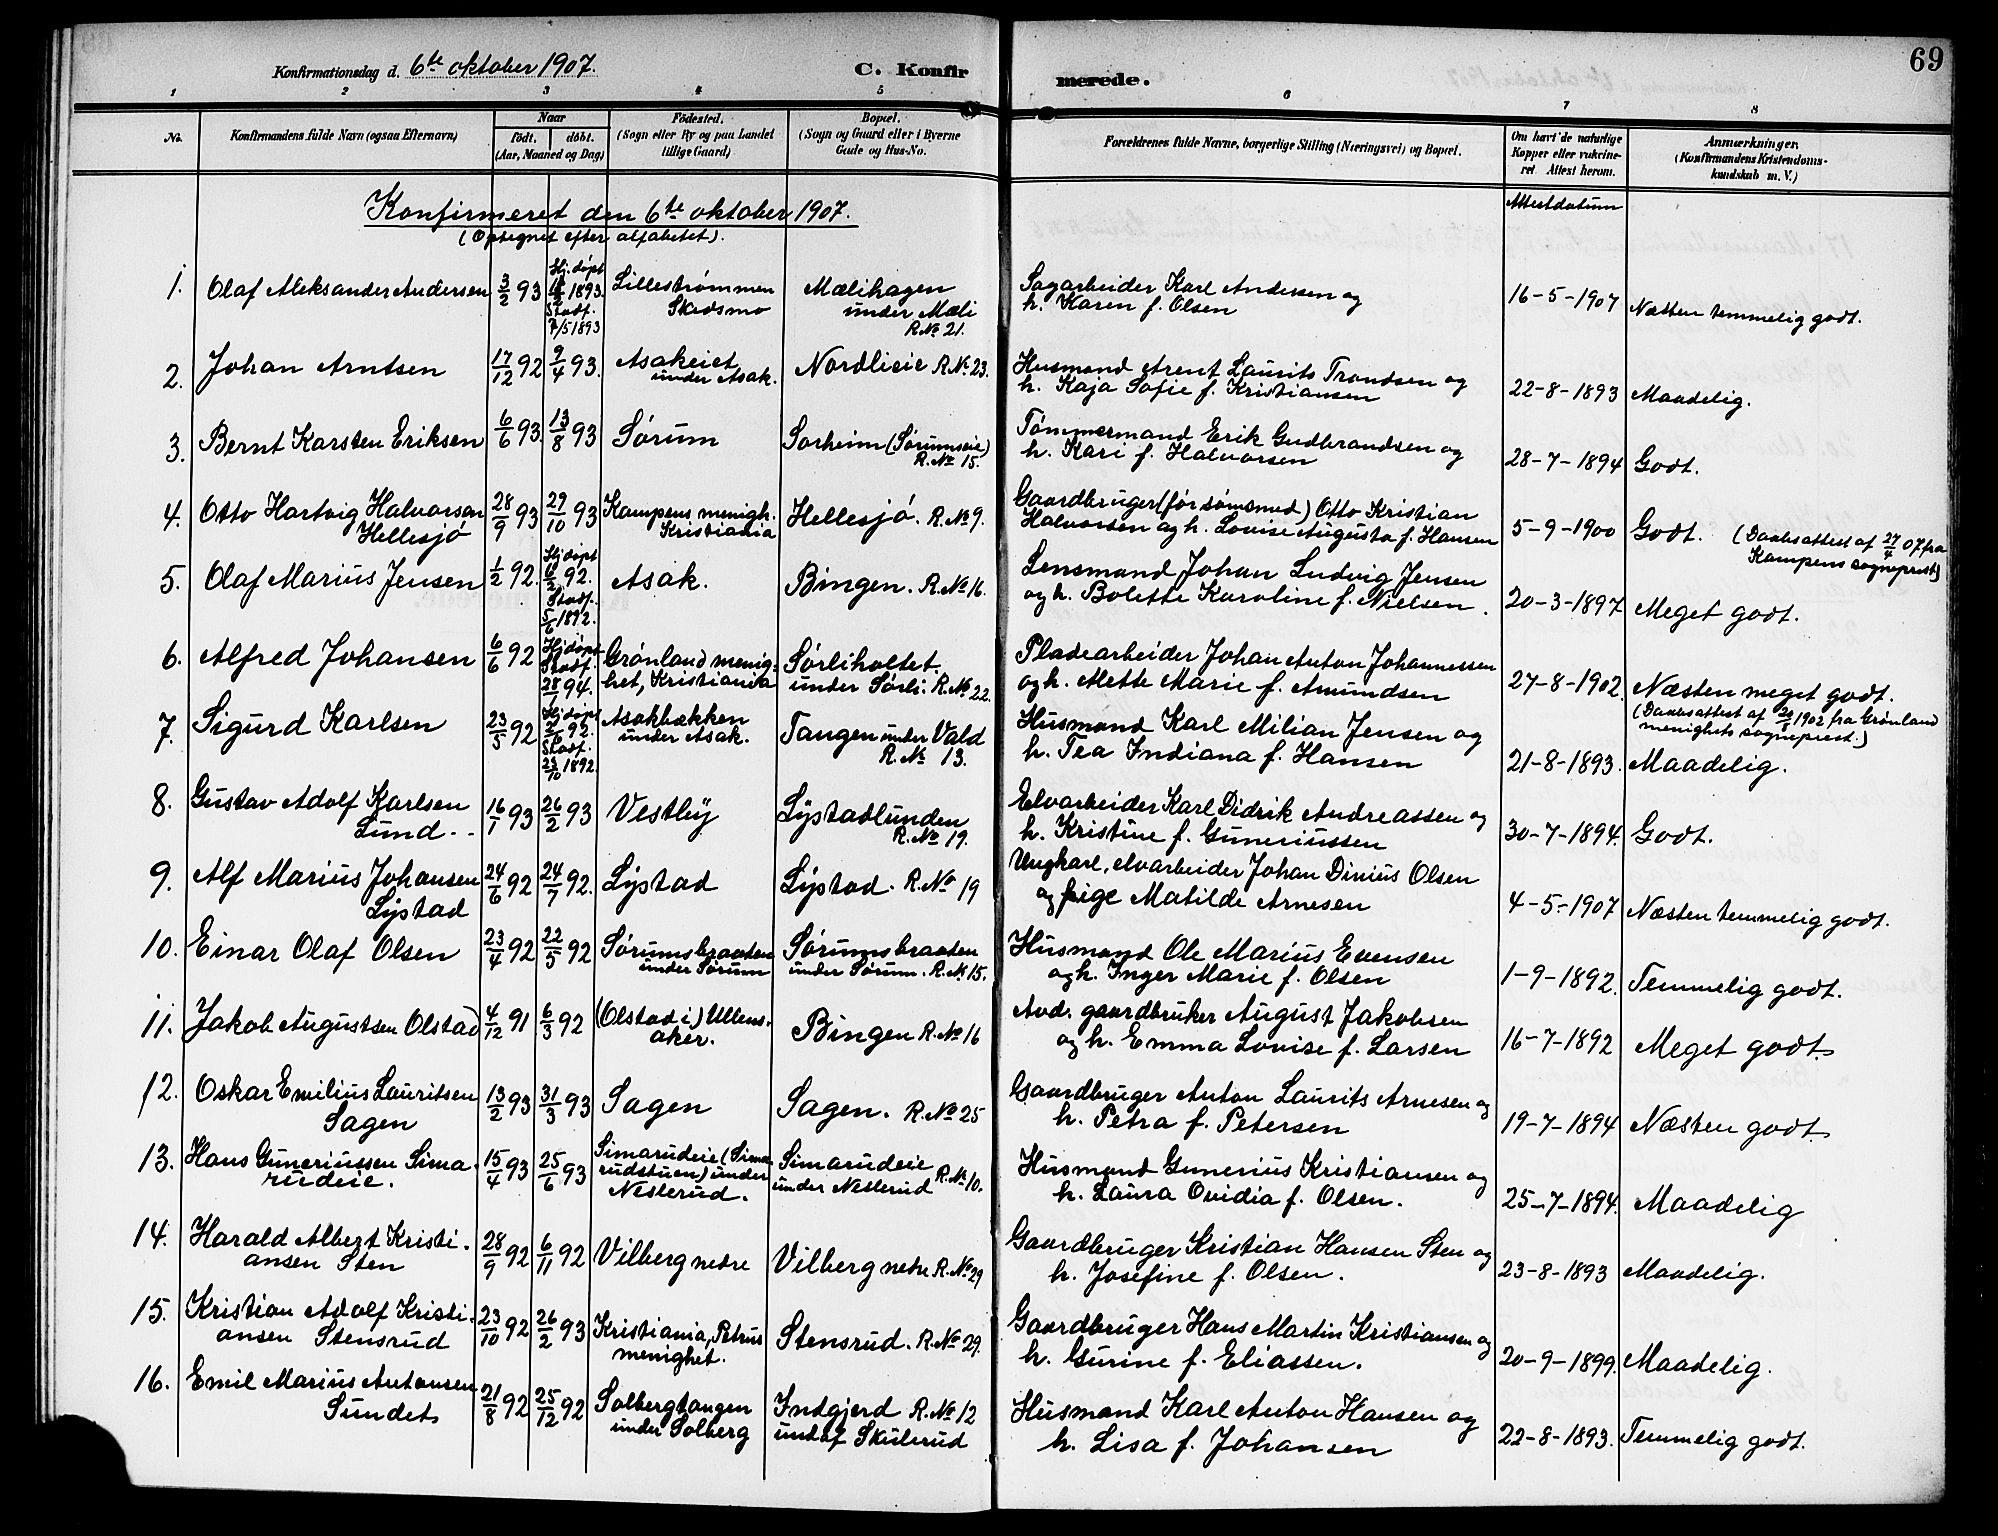 69
Konfirmationsdag d. 6te oktober 1907.
C. Konfirmerede.
1 2 3 4 5 6 7 8
No.
Konfirmandens fulde Navn (ogsaa Efternavn)
Naar
født. døbt.
(Aar, Maaned og Dag)
Fødested.
(Sogn eller By og paa Landet
tillige Gaard)
Bopæl.
(Sogn og Gaard eller i Byerne
Gade og Hus-No.
Forældrenes fulde Navne, borgerlige Stilling (Næringsvei) og Bopæl.
Om havt de naturlige
Kopper eller vakcine-
ret. Attest herom.
Anmærkninger.
(Konfirmandens Kristendoms-
kundskab m. V.)
Attestdatum
Konfirmeret den 6te oktober 1907.
(Optegnet efter alfabetet).
1. Olaf Aleksander Andersen 3/2 93 Hj. døpt 12/2 1893. Stadf. 7/5 1893 Lillestrømmen Skedsmo Mælihagen under Mæli R.No 21. Sagarbeider Karl Andersen og h. Karen f. Olsen 16-5-1907 Næsten temmelig godt.
2. Johan Arntsen 17/12 92 9/4 93. Asakeiet under Asak. Nordlieie R.No 23. Husmand Arent Laurits Trondsen og h. Kaja Sofie f. Kristiansen 22-8-1893 Maadelig.
3. Bernt Karsten Eriksen 6/6 93. 13/8 93 Sørum Sorheim (Sørumseie) R.No 15. Tømmermand Erik Gudbrandsen og h. Kari f. Halvorsen 28-7-1894 Godt.
4. Otto Hartvig Halvorsen Hellesjø 28/9 93 29/10 93 Kampens menigh. Kristiania Hellesjø. R.No 9. Gaardbruger (før sømsmed) Otto Kristian Halvorsen og h. Lovise Augusta f. Hansen 5-9-1900 Godt. (Daabsattest af 27/4 07 fra Kampens sogneprest)
5. Olaf Marius Jensen 1/2 92. Hj. døpt 6/2 92. Stadf. 5/6 1892. Asak. Bingen. R.No 16. Lensmand Johan Ludvig Jensen og h. Bolette Karoline f. Nielsen. 20-3-1897 Meget godt.
6. Alfred Johansen 6/6 92 Hj. døpt Stadf. 28/1 94. Grønland menighet, Kristiania Sørliholtet under Sørli. R.No 22. Pladearbeider Johan Anton Johannessen og h. Mette Marie f. Amundsen 27-8-1902. Næsten meget godt. (Daabsattest af 1902 fra Grønland menighets sogneprest.)
7. Sigurd Karlsen 23/5 92 Hj. døpt 2/6 92. Stadf. 23/10 1892. Asakbækken under Asak. Tangen under Vald R.No 13. Husmand Karl Milian Jensen og h. Tea Indiana f. Hansen 21-8-1893. Maadelig.
8. Gustav Adolf Karlsen Lund 16/1 93 26/2 93 Vestby Lystadlunden R.No 19. Elvarbeider Karl Didrik Andreassen og h. Kristine f. Guneriussen 30-7-1894. Godt.
9. Alf Marius Johansen Lystad 24/6 92 24/7 92. Lystad Lystad. R.No 19 Ungkarl, elvarbeider Johan Dinius Olsen og pige Matilde Arnesen 4-5-1907 Næsten temmelig godt.
10. Einar Olaf Olsen 23/4 92 22/5 92 Sørumsbraaten under Sørum Sørumsbraaten under Sørum. R.No 15. Husmand Ole Marius Evensen og h. Inger Marie f. Olsen 1-9-1892. Temmelig godt.
11. Jakob Augustsen Olstad 4/12 91 6/3 92 (Olstad i) Ullensaker. Bingen R.No 16 Avd. gaardbruker August Jakobsen og h. Emma Lovise f. Larsen 16-7-1892 Meget godt.
12. Oskar Emilius Lauritsen Sagen 13/2 93 31/3 93 Sagen Sagen. R.No 25 Gaardbruger Anton Laurits Arnesen og h. Petra f. Petersen 19-7-1894 Næsten godt.
13. Hans Guneriussen Simarudeie. 15/4 93 25/6 93 Simarudeie (Simarudstuen) under Nesterud. Simarudeie under Nesterud R.No 10. Husmand Gunerius Kristiansen og h. Laura Ovidia f. Olsen. 25-7-1894. Maadelig
14. Harald Albert Kristiansen Sten 28/9 92 6/11 92 Vilberg nedre Vilberg nedre R.No 29 Gaardbruger Kristian Hansen Sten og h. Josefine f. Olsen. 23-8-1893 Maadelig.
15. Kristian Adolf Kristiansen Stensrud 23/10 92 26/2 93 Kristiania, Petrus menighet. Stensrud. R.No 29. Gaardbruger Hans Martin Kristiansen og h. Gurine f. Eliassen. 20-9-1899. Maadelig.
16. Emil Marius Antonsen Sundet 21/8 92 25/12 92 Solbergtangen under Solberg Indgjerd R.No 12 under Skulerud Husmand Karl Anton Hansen og h. Lisa f. Johansen 22-8-1893. Temmelig godt.